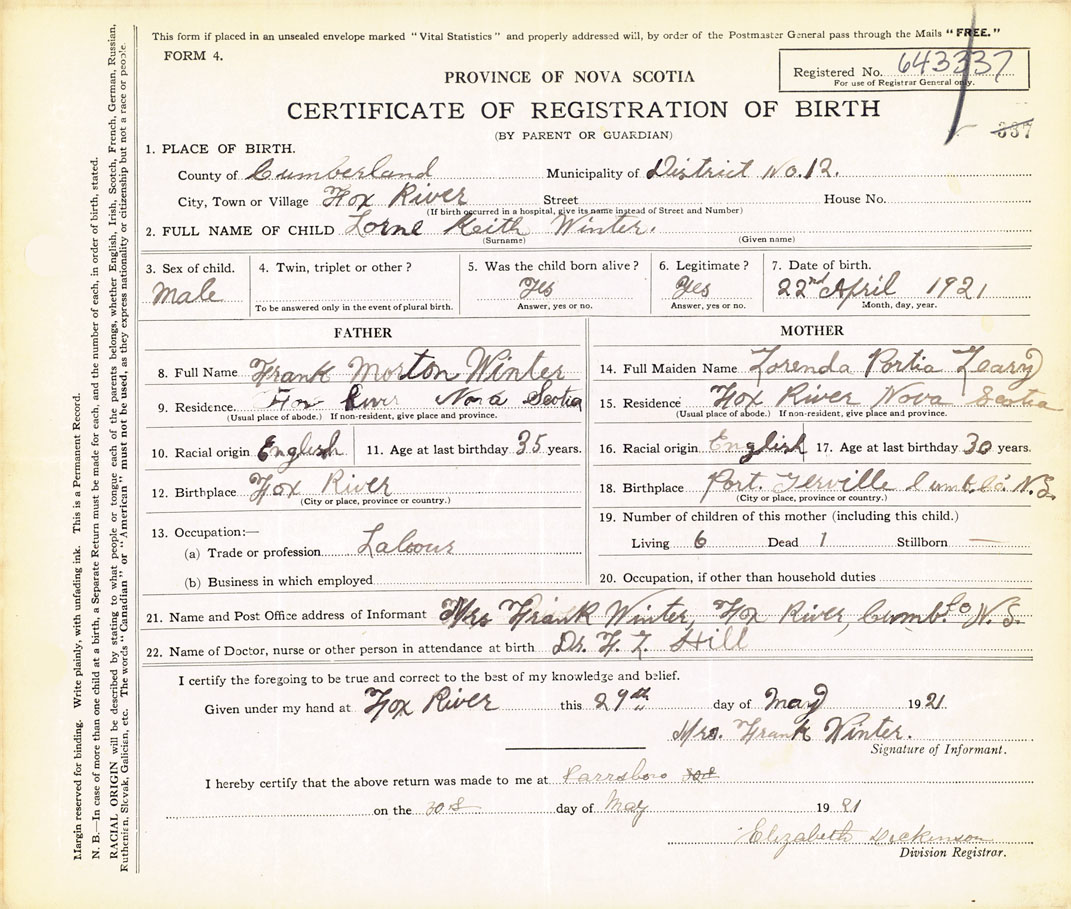 This form if placed in an unsealed envelope marked "Vital Statistics" and properly addressed will, by order of the Postmaster General pass through the Mails "FREE."
FORM 4.
Registered No. 643337
For use of Registrar General only.
PROVINCE OF NOVA SCOTIA
CERTIFICATE OF REGISTRATION OF BIRTH
(BY PARENT OR GUARDIAN)
337
1. PLACE OF BIRTH.
County of Cumberland Municipality of District No. 12.
City, Town or Village Fox River Street House No.
(If birth occurred in a hospital, give its name instead of Street and Number)
2. FULL NAME OF CHILD Lorne Keith Winter.
(Surname) (Given name)
3. Sex of child. 4. Twin, triplet or other? 5. Was the child born alive? 6. Legitimate? 7. Date of birth.
Male Yes Yes 22nd April 1921
To be answered only in the event of plural birth. Answer, yes or no. Answer, yes or no. Month, day, year.
FATHER
8. Full Name Frank Morton Winter
9. Residence. Fox River Nova Scotia
(Usual place of abode.) If non-resident, give place and province.
10. Racial origin English 11. Age at last birthday 35 years.
12. Birthplace Fox River
(City or place, province or country.)
13. Occupation:—
(a) Trade or profession Labour
(b) Business in which employed
MOTHER
14. Full Maiden Name Lorenda Portia Leary
15. Residence Fox River Nova Scotia
(Usual place of abode.) If non-resident, give place and province.
16. Racial origin English 17. Age at last birthday 30 years.
18. Birthplace Port. Gerville N.S.
(City or place, province or country.)
19. Number of children of this mother (including this child.)
Living 6 Dead 1 Stillborn —
20. Occupation, if other than household duties
21. Name and Post Office address of Informant Mrs Frank Winter, Fox River, Cumb. Co N.S.
22. Name of Doctor, nurse or other person in attendance at birth Dr. Hill
I certify the foregoing to be true and correct to the best of my knowledge and belief.
Given under my hand at Fox River this 29th day of May 1921.
Mrs. Frank Winter.
Signature of Informant.
I hereby certify that the above return was made to me at Parrsboro
on the 30th day of May 1921
Elizabeth Dickinson
Division Registrar.
Margin reserved for binding. Write plainly, with unfading ink. This is a Permanent Record.
N. B.—In case of more than one child at a birth, a Separate Return must be made for each, and the number of each, in order of birth, stated.
RACIAL ORIGIN will be described by stating to what people or tongue each of the parents belongs, whether English, Irish, Scotch, French, German, Russian,
Ruthenian, Slovak, Galician, etc. The words "Canadian" or "American" must not be used, as they express nationality or citizenship but not a race or people.